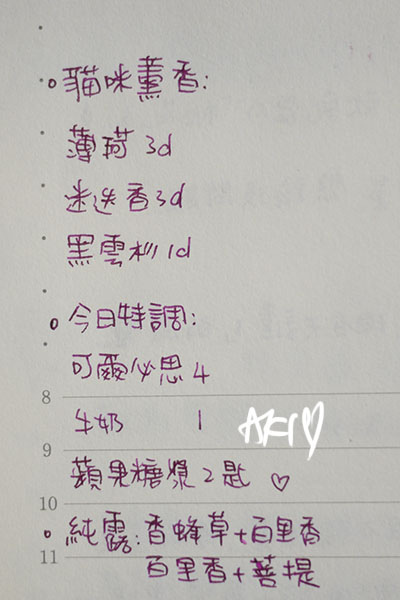 。貓咪薰香：
薄荷 3d
迷迭香3d
黑雲杉1d
。今日特調：
可爾必思 4
8
牛奶 1
9
蘋果糖漿2匙 ♡
10
。純露：香蜂草+百里香
11
百里香+菩提